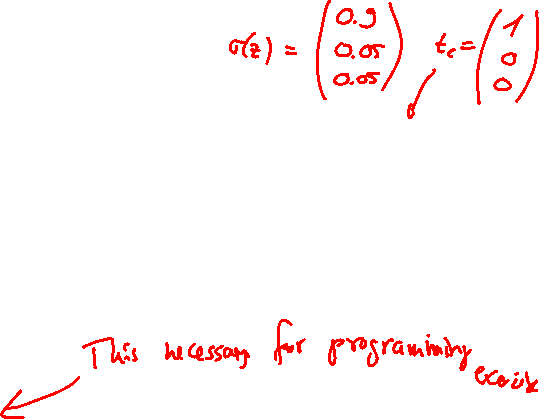 σ(z) = (0.9 0.05 0.05) t_c = (1 0 0)
This necessary for programming